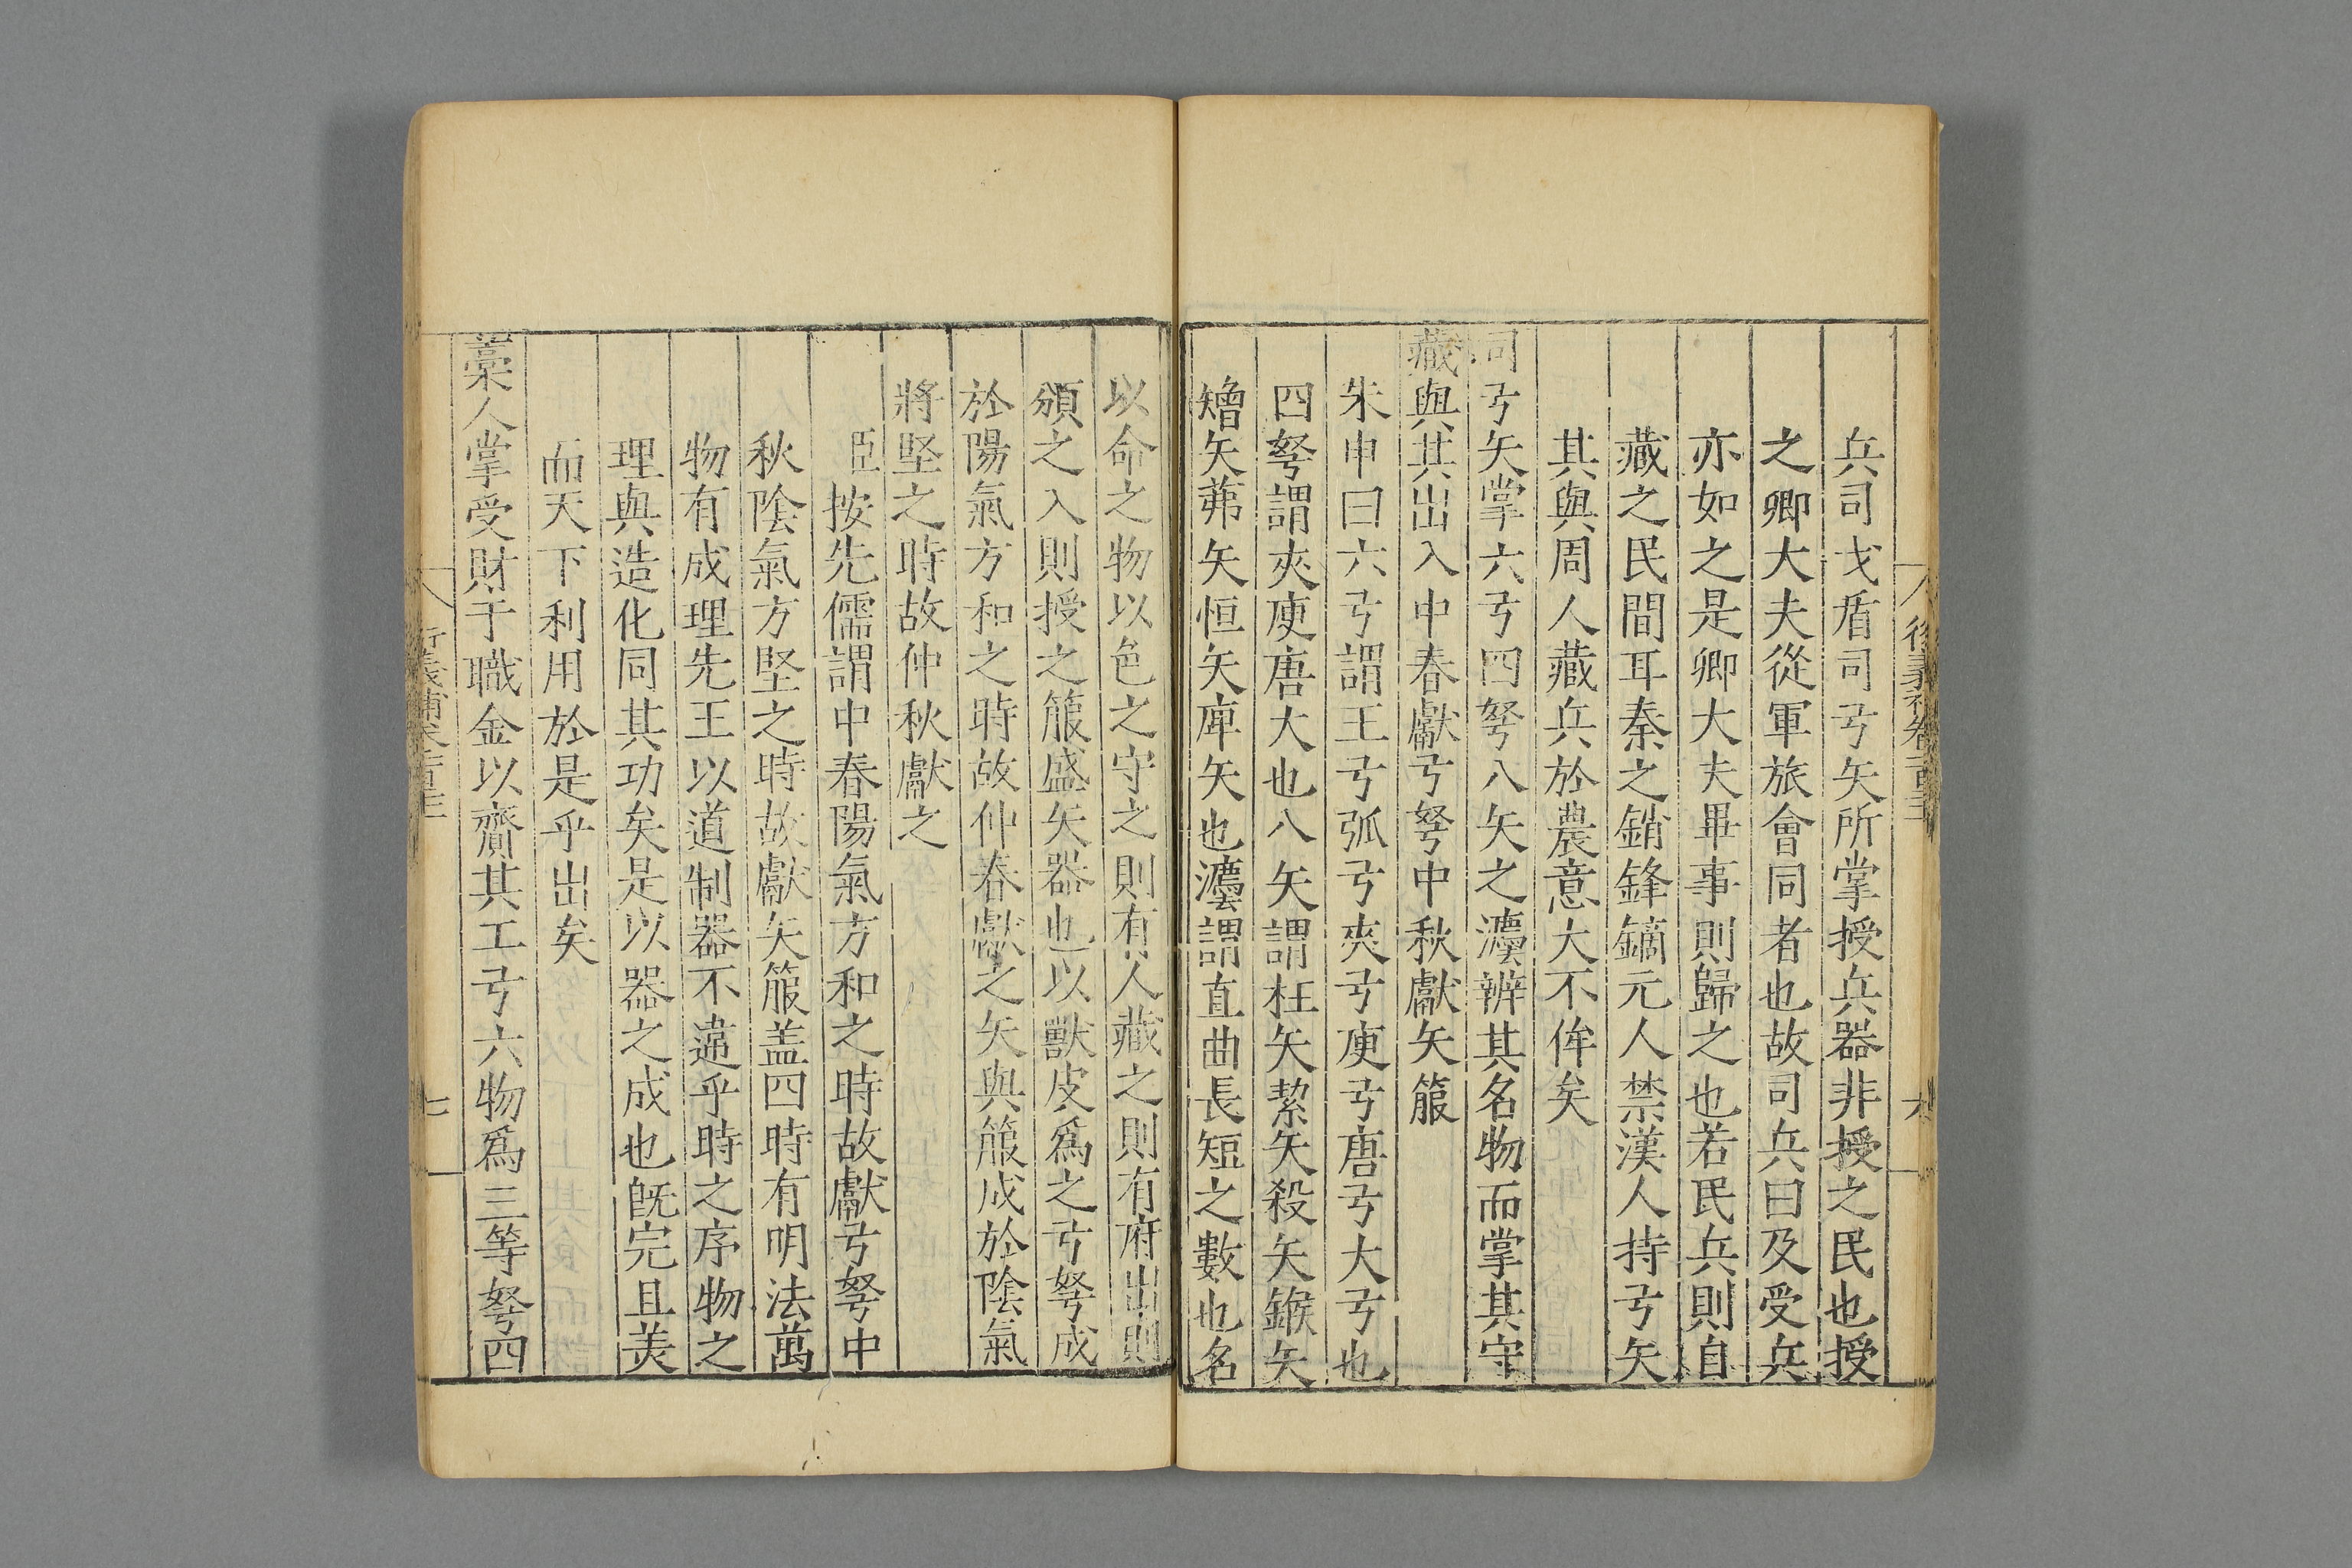 兵司戈盾司弓矢所掌授兵器非授之民也授
之卿大夫從軍旅會同者也故司兵曰及受兵
亦如之是卿大夫畢事則歸之也若民兵則自
藏之民間耳秦之銷鋒鏑元人禁漢人持弓矢
其與周人藏兵於農意大不侔矣
司弓矢掌六弓四弩八矢之灋辨其名物而掌其守
藏與其出入中春獻弓弩中秋獻矢箙
朱申曰六弓謂王弓弧弓夾弓庾弓唐弓大弓也
四弩謂夾庾唐大也八矢謂枉矢絜矢殺矢鍭矢
矰矢茀矢恒矢庳矢也灋謂直曲長短之數也名
以命之物以色之守之則有人藏之則有府出則
頒之入則授之箙盛矢器也以獸皮爲之弓弩成
於陽氣方和之時故仲春獻之矢與箙成於陰氣
將堅之時故仲秋獻之
臣按先儒謂中春陽氣方和之時故獻弓弩中
秋陰氣方堅之時故獻矢箙盖四時有明法萬
物有成理先王以道制器不違乎時之序物之
理與造化同其功矣是以器之成也旣完且美
而天下利用於是乎出矣
槀人掌受財于職金以齎其工弓六物爲三等弩四